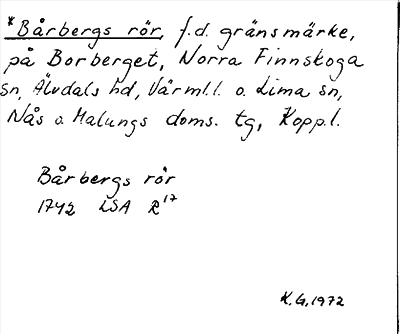 *Bårbergs rör, f.d. gränsmärke,
på Borberget, Norra Finnskoga
sn, Älvdals hd, Värml.l. o. Lima sn,
Nås o Malungs doms. tg, Kopp.l.
Bårbergs rör
1742 LSA R¹⁷
K.G. 1972